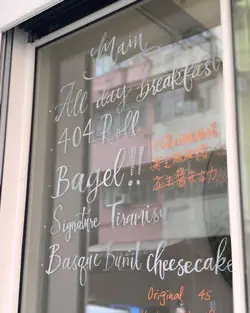 Main
· All day breakfast
· 404 Roll
· Bagel!!
· Signature Tiramisu
· Basque burnt cheesecake
Original 45